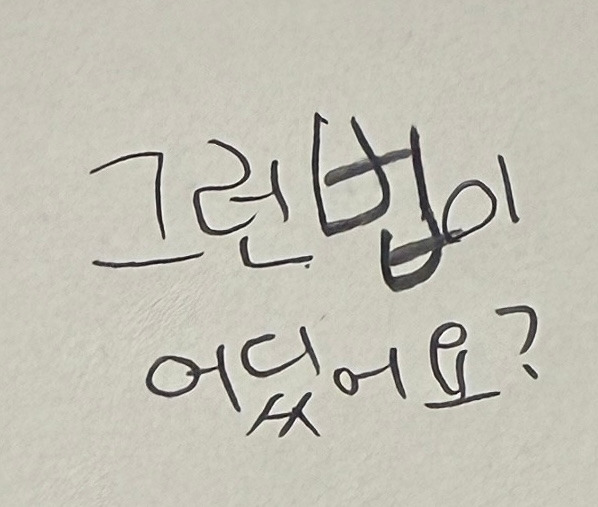 그런법이
어딨어요?